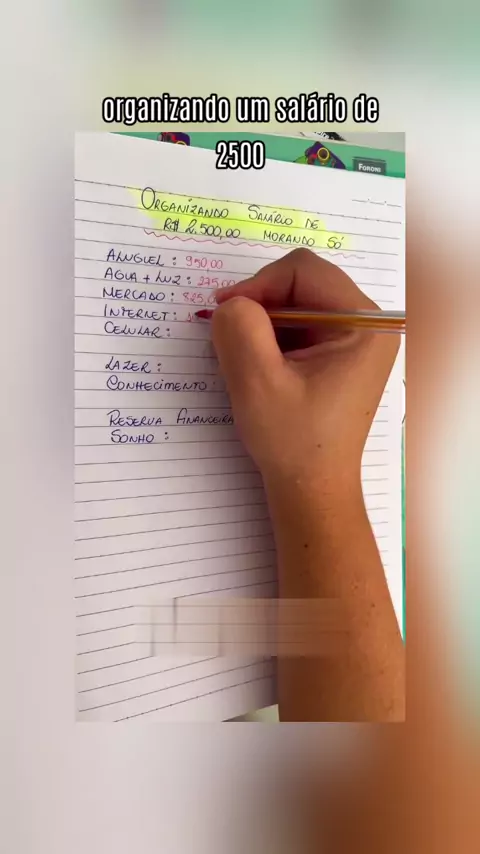 organizando um salário de
2500
FORONI
ORGANIZANDO SALÁRIO DE
R$ 2.500,00 MORANDO SÓ
ALUGUEL : 950,00
ÁGUA + LUZ : 275,00
MERCADO : 825,0
INTERNET :
CELULAR :
LAZER :
CONHECIMENTO :
RESERVA FINANCEIRA
SONHO :